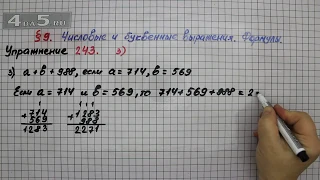 4 на 5.ru
§ 9. Числовые и буквенные выражения. Формулы.
Упражнение 243. з)
з) a + b + 988, если a = 714, b = 569
Если a = 714 и b = 569, то 714 + 569 + 988 = 2
1 1 1
+ 714 + 1283
569 988
1283 2271